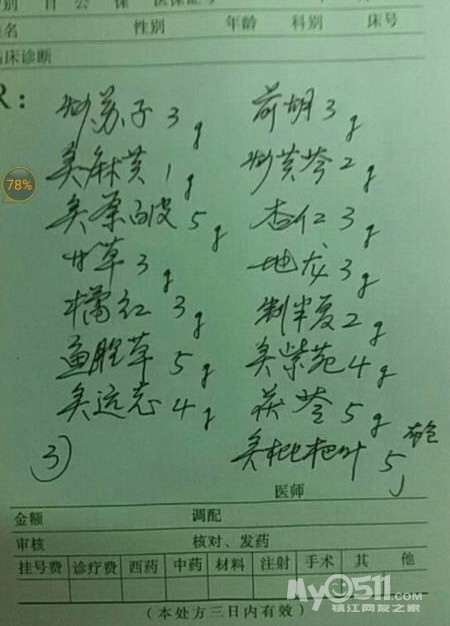 性别 年龄 科别 床号
临床诊断
R：
炒苏子 3g 前胡 3g
炙麻黄 1g 炒黄芩 2g
78%
炙桑白皮 5g 杏仁 3g
甘草 3g 地龙 3g
橘红 3g 制半夏 2g
鱼腥草 5g 炙紫苑 4g
炙远志 4g 茯苓 5g
炙枇杷叶 5g
3)
医师
金额 调配
审核 核对、发药
挂号费 诊疗费 西药 中药 材料 注射 手术 其 他
(本处方三日内有效)
My0511.com
镇江网友之家